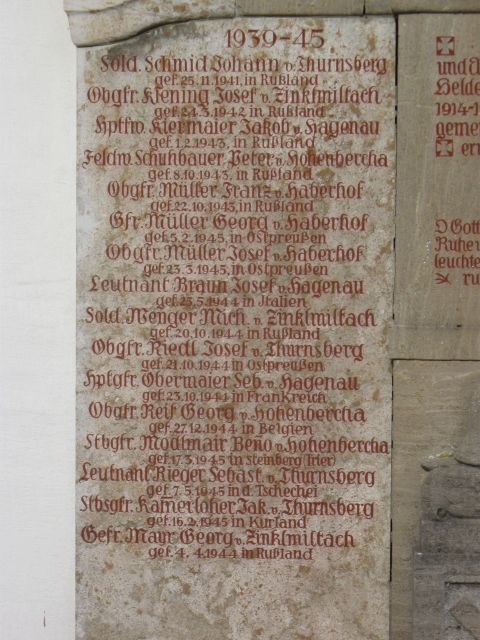 1939-45
Sold. Schmid Johann v. Thurnsberg
gef. 25.11.1941, in Rußland
Obgfr. Kiening Josef v. Zinklmiltach
gef. 24.3.1942 in Rußland
Hptfw. Kiermaier Jakob v. Hagenau
gef. 1.2.1943, in Rußland
Feldw. Schuhbauer Peter v. Hohenbercha
gef. 8.10.1943, in Rußland
Obgfr. Müller Franz v. Haberhof
gef. 22.10.1943, in Rußland
Gfr. Müller Georg v. Haberhof
gef. 5.2.1945, in Ostpreußen
Obgfr. Müller Josef v. Haberhof
gef. 23.3.1945, in Ostpreußen
Leutnant Braun Josef v. Hagenau
gef. 23.5.1944 in Italien
Sold. Wenger Mich. v. Zinklmiltach
gef. 20.10.1944 in Rußland
Obgfr. Riedl Josef v. Thurnsberg
gef. 21.10.1944 in Ostpreußen
Hptgfr. Obermaier Seb. v. Hagenau
gef. 23.10.1944 in Frankreich
Obgfr. Reif Georg v. Hohenbercha
gef. 27.12.1944 in Belgien
Stbgfr. Modlmair Beno v. Hohenbercha
gef. 17.3.1945 in Steinberg (Irler)
Leutnant Rieger Sebast. v. Thurnsberg
gef. 7.5.1945 in d. Tschechei
Stbsgfr. Kamerloher Jak. v. Thurnsberg
gef. 16.2.1945 in Kurland
Gefr. Mayr Georg v. Zinklmiltach
gef. 4.4.1944 in Rußland
und
Helde
1914-1
geme
er
O Gott
Ruhe
leuchte
ru